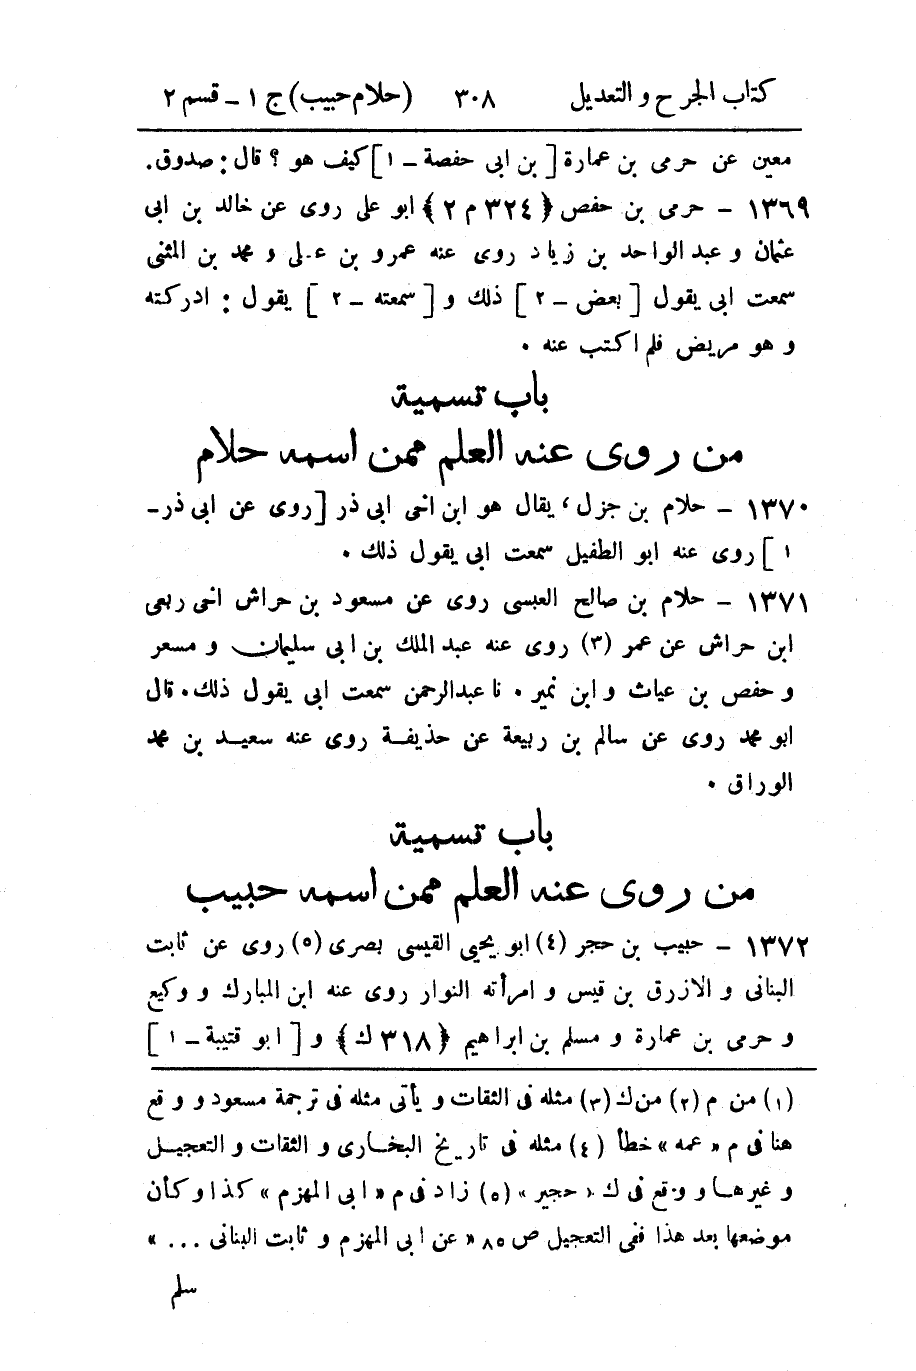 كتاب الجرح و التعديل ٣٠٨ (حلام حبيب) ج ١ - قسم ٢
معين عن حرمى بن عمارة [ بن ابى حفصة - ١ ] كيف هو ؟ قال : صدوق .
١٣٦٩ - حرمى بن حفص ﴿ ٣٢٤ م ٢ ﴾ ابو على روى عن خالد بن ابى
عثمان و عبد الواحد بن زياد روى عنه عمرو بن على و محمد بن المثنى
سمعت ابى يقول [ بعض - ٢ ] ذلك و [ سمعته - ٢ ] يقول : ادركته
و هو مريض فلم اكتب عنه .
باب تسمية
من روى عنه العلم ممن اسمه حلام
١٣٧٠ - حلام بن جزل ، يقال هو ابن اخى ابى ذر [ روى عن ابى ذر -
١ ] روى عنه ابو الطفيل سمعت ابى يقول ذلك .
١٣٧١ - حلام بن صالح العبسى روى عن مسعود بن حراش اخى ربعى
ابن حراش عن عمر (٣) روى عنه عبد الملك بن ابى سليمان و مسعر
و حفص بن عياث و ابن نمير . نا عبدالرحمن سمعت ابى يقول ذلك . قال
ابو محمد روى عن سالم بن ربيعة عن حذيفة روى عنه سعيد بن محمد
الوراق .
باب تسمية
من روى عنه العلم ممن اسمه حبيب
١٣٧٢ - حبيب بن حجر (٤) ابو يحيى القيسى بصرى (٥) روى عن ثابت
البنانى و الازرق بن قيس و امرأته النوار روى عنه ابن المبارك و وكيع
و حرمى بن عمارة و مسلم بن ابراهيم ﴿ ٣١٨ ك ﴾ و [ ابو قتيبة - ١ ]
(١) من م (٢) من ك (٣) مثله فى الثقات و يأتى مثله فى ترجمة مسعود و وقع
هنا فى م « عمه » خطأ (٤) مثله فى تاريخ البخارى و الثقات و التعجيل
و غيرها و وقع فى ك « حجير » (٥) زاد فى م « ابى المهزم » كذا و كأن
موضعها بعد هذا ففى التعجيل ص ٨٥ « عن ابى المهزم و ثابت البنانى ... »
سلم